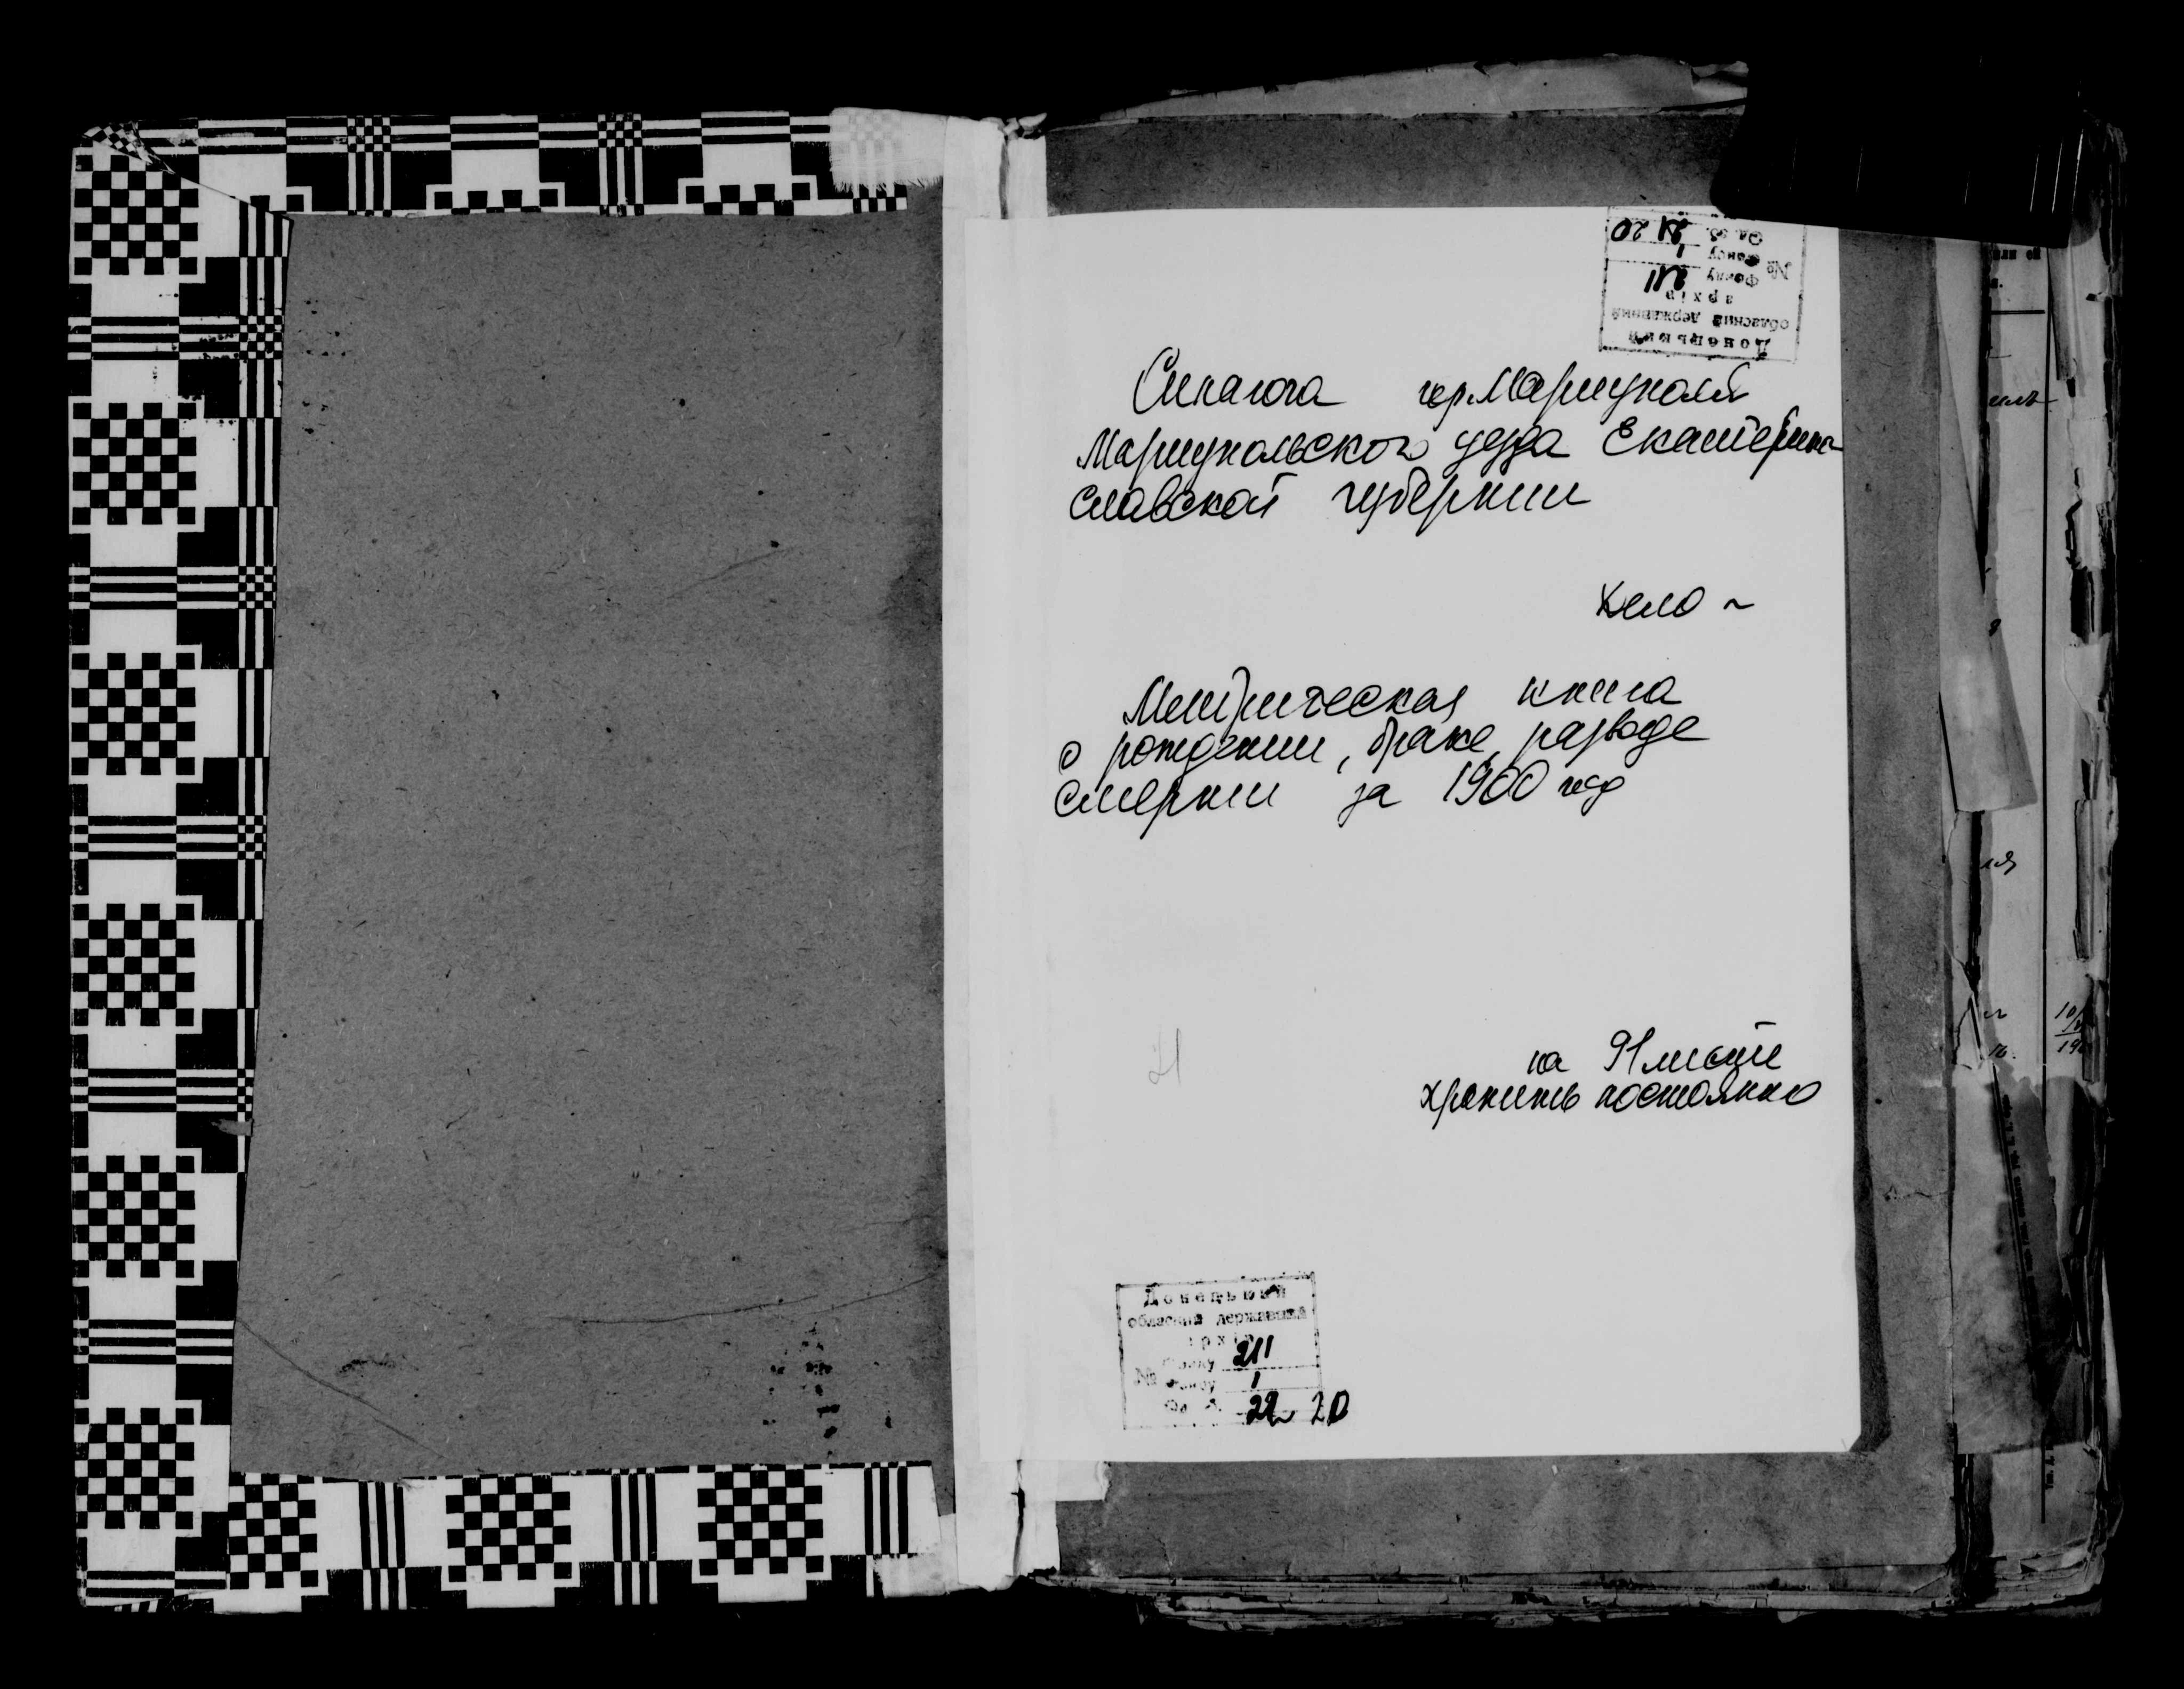 Донецький
обласний державний
архів
№ фонду 211
опису 1
Од. зб. 21 20
Синагога гор. Мариуполя
Мариупольского уезда Екатерино-
славской губернии
Дело ~
Метрическая книга
о рождении, браке, разводе
смерти за 1900 год
на 91 листе
хранить постоянно
21
Донецький
обласний державний
архів
фонду 211
№ опису 1
Од. зб. 20